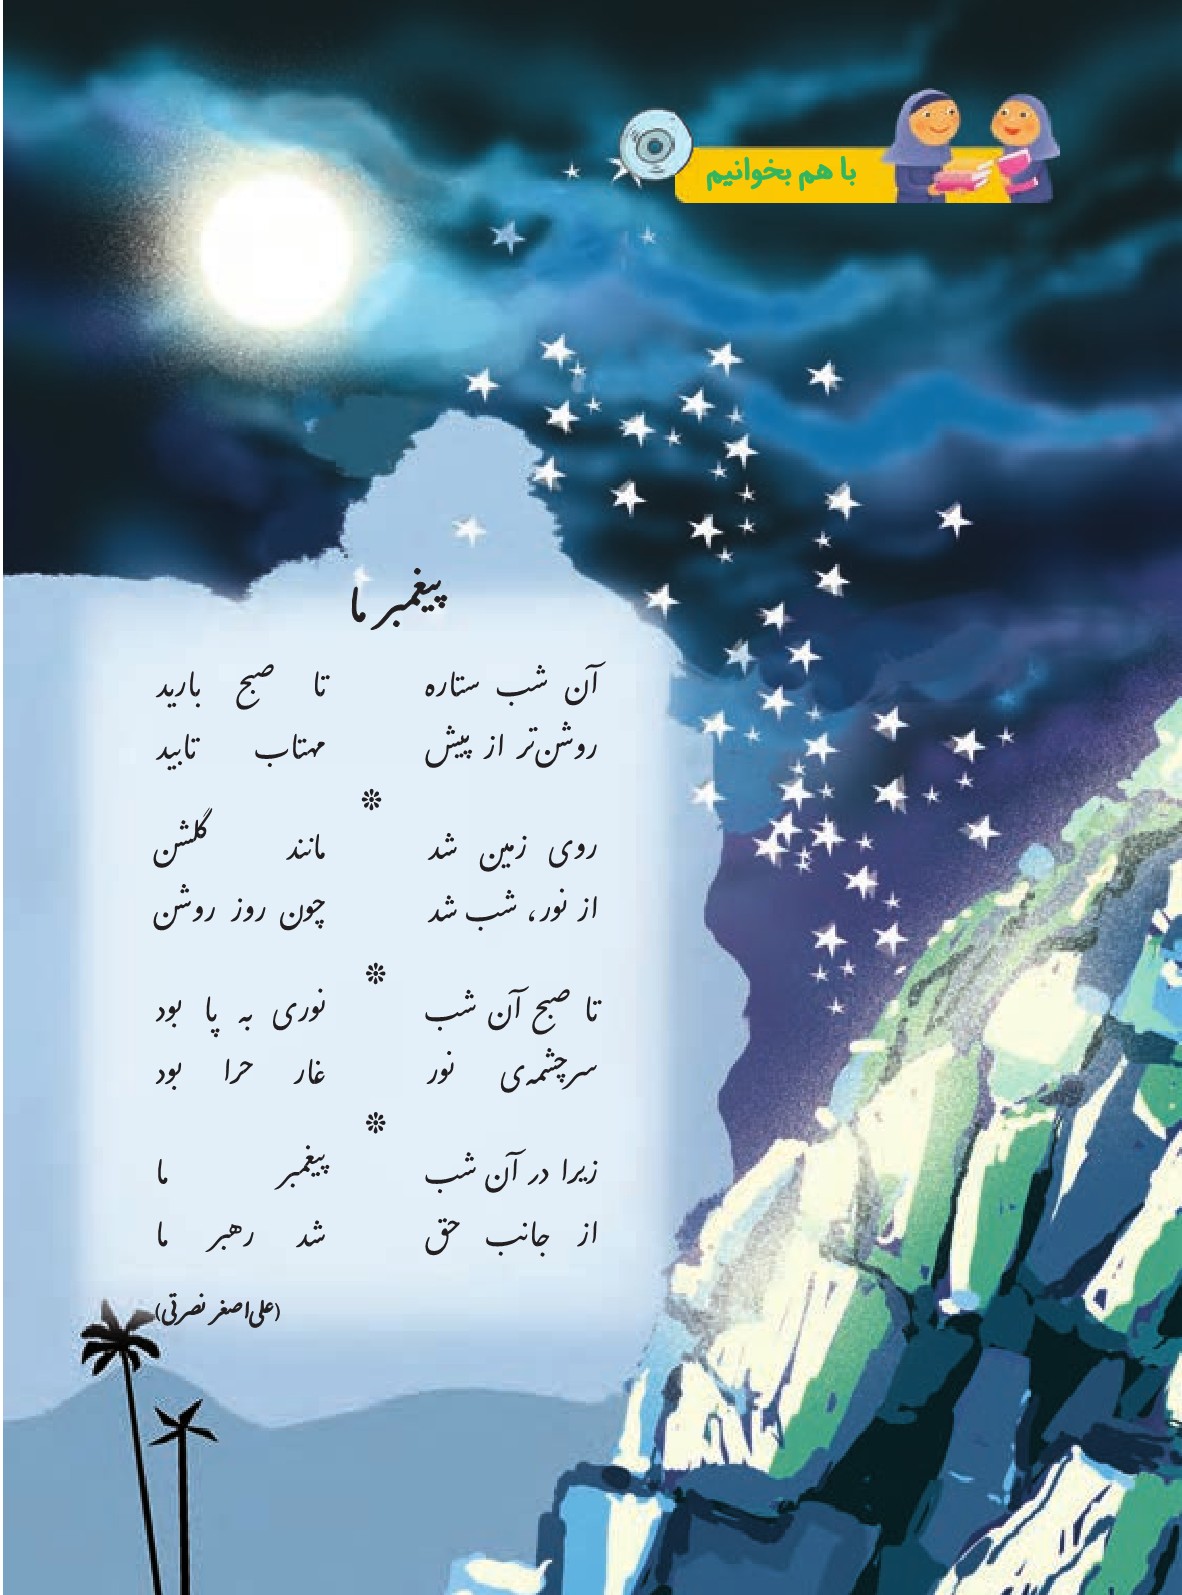 با هم بخوانیم
پیغمبر ما
آن شب ستاره تا صبح بارید
روشن‌تر از پیش مهتاب تابید
❊
روی زمین شد مانند گلشن
از نور، شب شد چون روز روشن
❊
تا صبح آن شب نوری به پا بود
سرچشمه‌ی نور غار حرا بود
❊
زیرا در آن شب پیغمبر ما
از جانب حق شد رهبر ما
(علی‌اصغر نصرتی)